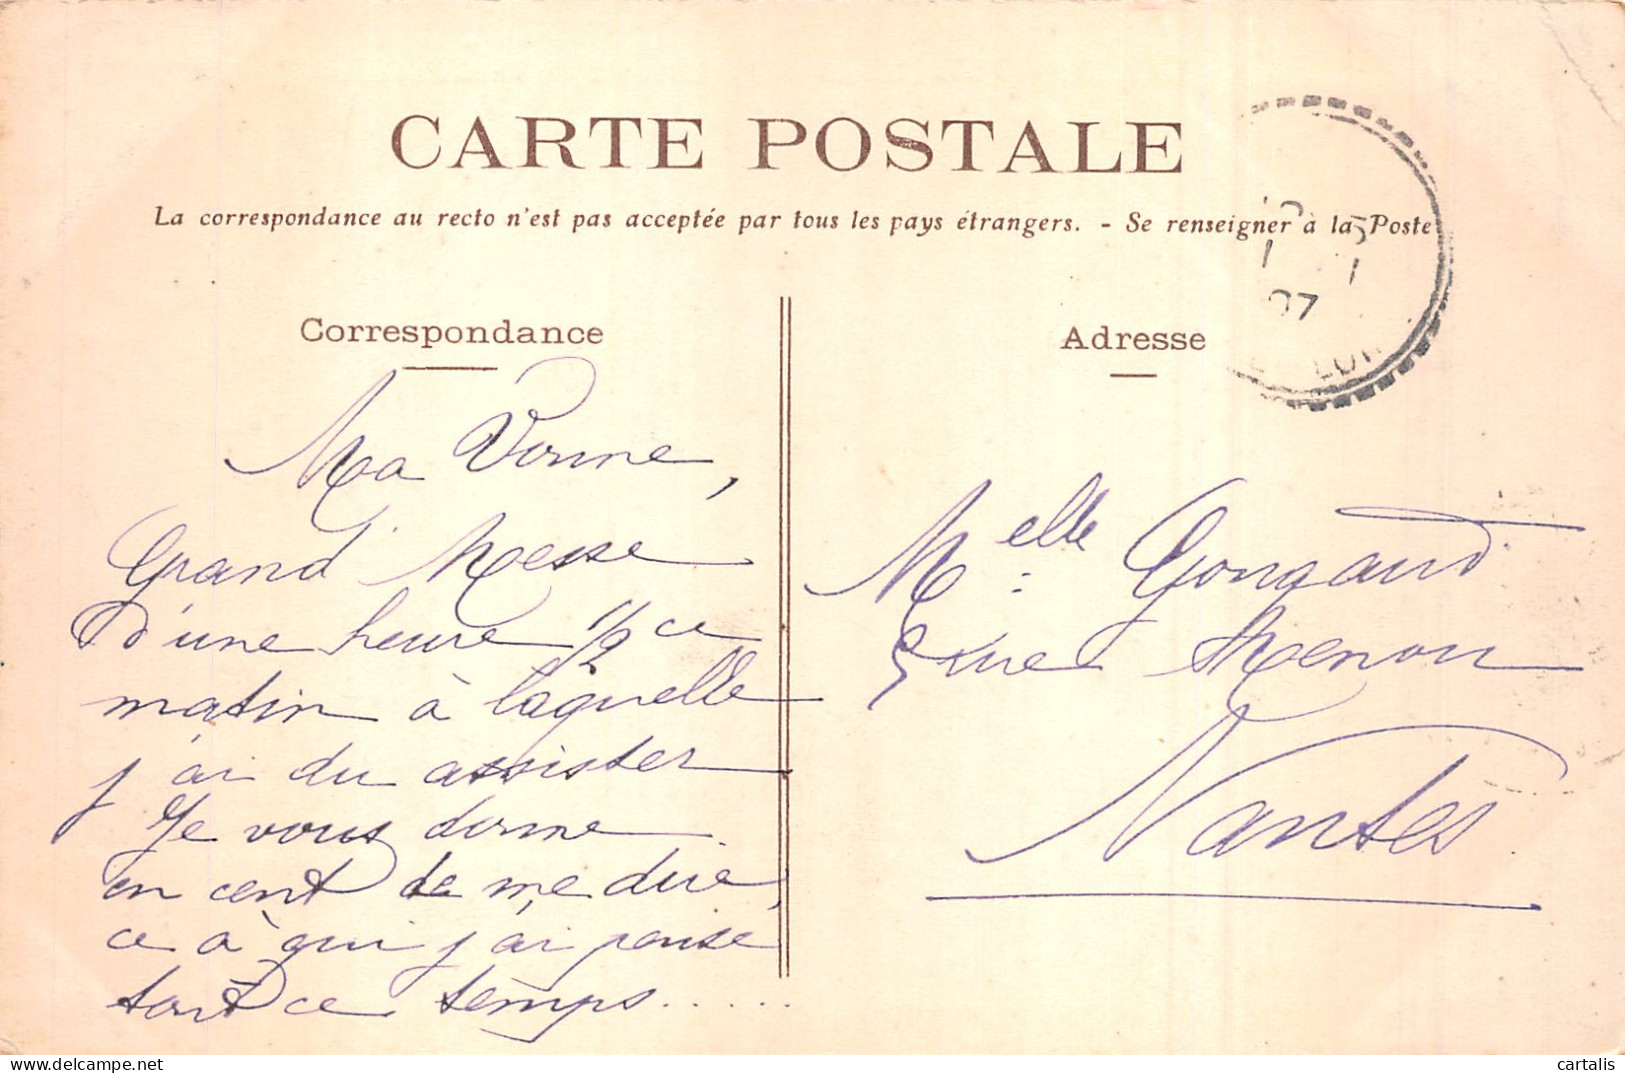 CARTE POSTALE
La correspondance au recto n'est pas acceptée par tous les pays étrangers. - Se renseigner à la Poste
Correspondance
Adresse
07
Ma Vonne,
Grand Messe
d'une heure 1/2 ce
matin à laquelle
j'ai du assister
Je vous donne
en cent de me dire,
ce à qui j'ai pensé
tout ce temps......
Melle Gougaud
5 rue Menou
Nantes
cartalis